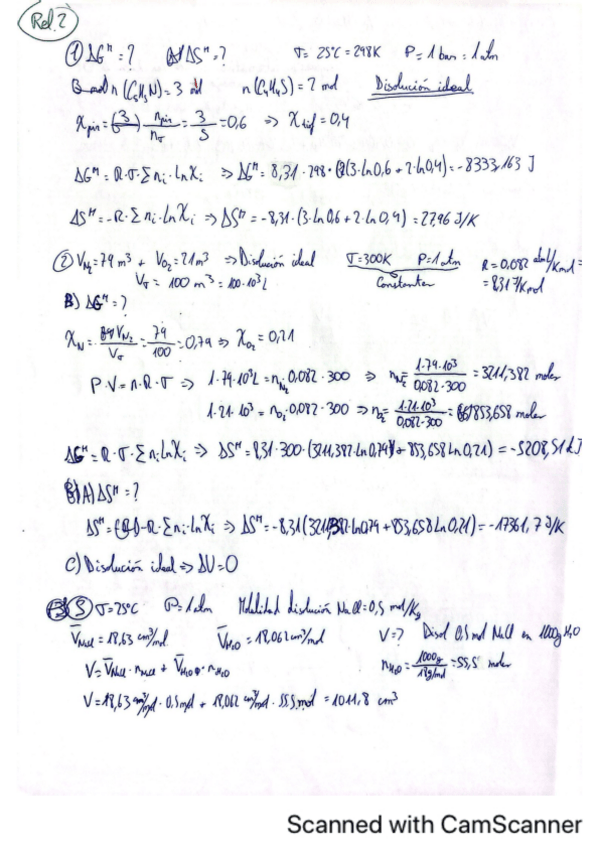 Rel. 2
① ΔGᴹ = ? ΔSᴹ = ? T = 25ºC = 298K P = 1 bar = 1 atm
n (C₅H₅N) = 3 mol n (C₄H₄S) = 2 mol Disolución ideal
Xpir = n pir / n T = 3/5 = 0,6 ⇒ X tiof = 0,4
ΔGᴹ = R·T·Σ ni·ln Xi ⇒ ΔGᴹ = 8,31·298·(3·ln 0,6 + 2·ln 0,4) = -8333,163 J
ΔSᴹ = -R·Σ ni·ln Xi ⇒ ΔSᴹ = -8,31·(3·ln 0,6 + 2·ln 0,4) = 27,96 J/K
② V N₂ = 79 m³ + V O₂ = 21 m³ ⇒ Disolución ideal T = 300K P = 1 atm R = 0,082 atm l/K mol =
V T = 100 m³ = 100·10³ L Constantes = 8,31 J/K mol
B) ΔGᴹ = ?
X N = V N₂ / V T = 79/100 = 0,79 ⇒ X O₂ = 0,21
P·V = n·R·T ⇒ 1·79·10³ L = n N₂·0,082·300 ⇒ n N₂ = 1·79·10³ / 0,082·300 = 3211,382 moles
1·21·10³ = n O₂·0,082·300 ⇒ n O₂ = 1·21·10³ / 0,082·300 = 853,658 moles
ΔGᴹ = R·T·Σ ni ln Xi ⇒ ΔSᴹ = 8,31·300·(3211,382·ln 0,79 + 853,658 ln 0,21) = -5208,51 kJ
A) ΔSᴹ = ?
ΔSᴹ = -R·Σ ni·ln Xi ⇒ ΔSᴹ = -8,31 (3211,382·ln 0,79 + 853,658 ln 0,21) = -17361,7 J/K
C) Disolución ideal ⇒ ΔU = 0
⑤ T = 25ºC P = 1 atm Molalidad disolución NaCl = 0,5 mol/Kg
V̄ NaCl = 18,63 cm³/mol V̄ H₂O = 18,062 cm³/mol V = ? Disol 0,5 mol NaCl en 1000g H₂O
V = V̄ NaCl · n NaCl + V̄ H₂O · n H₂O n H₂O = 1000g / 18g/mol = 55,5 moles
V = 18,63 cm³/mol · 0,5 mol + 18,062 cm³/mol · 55,5 mol = 1011,8 cm³
Scanned with CamScanner